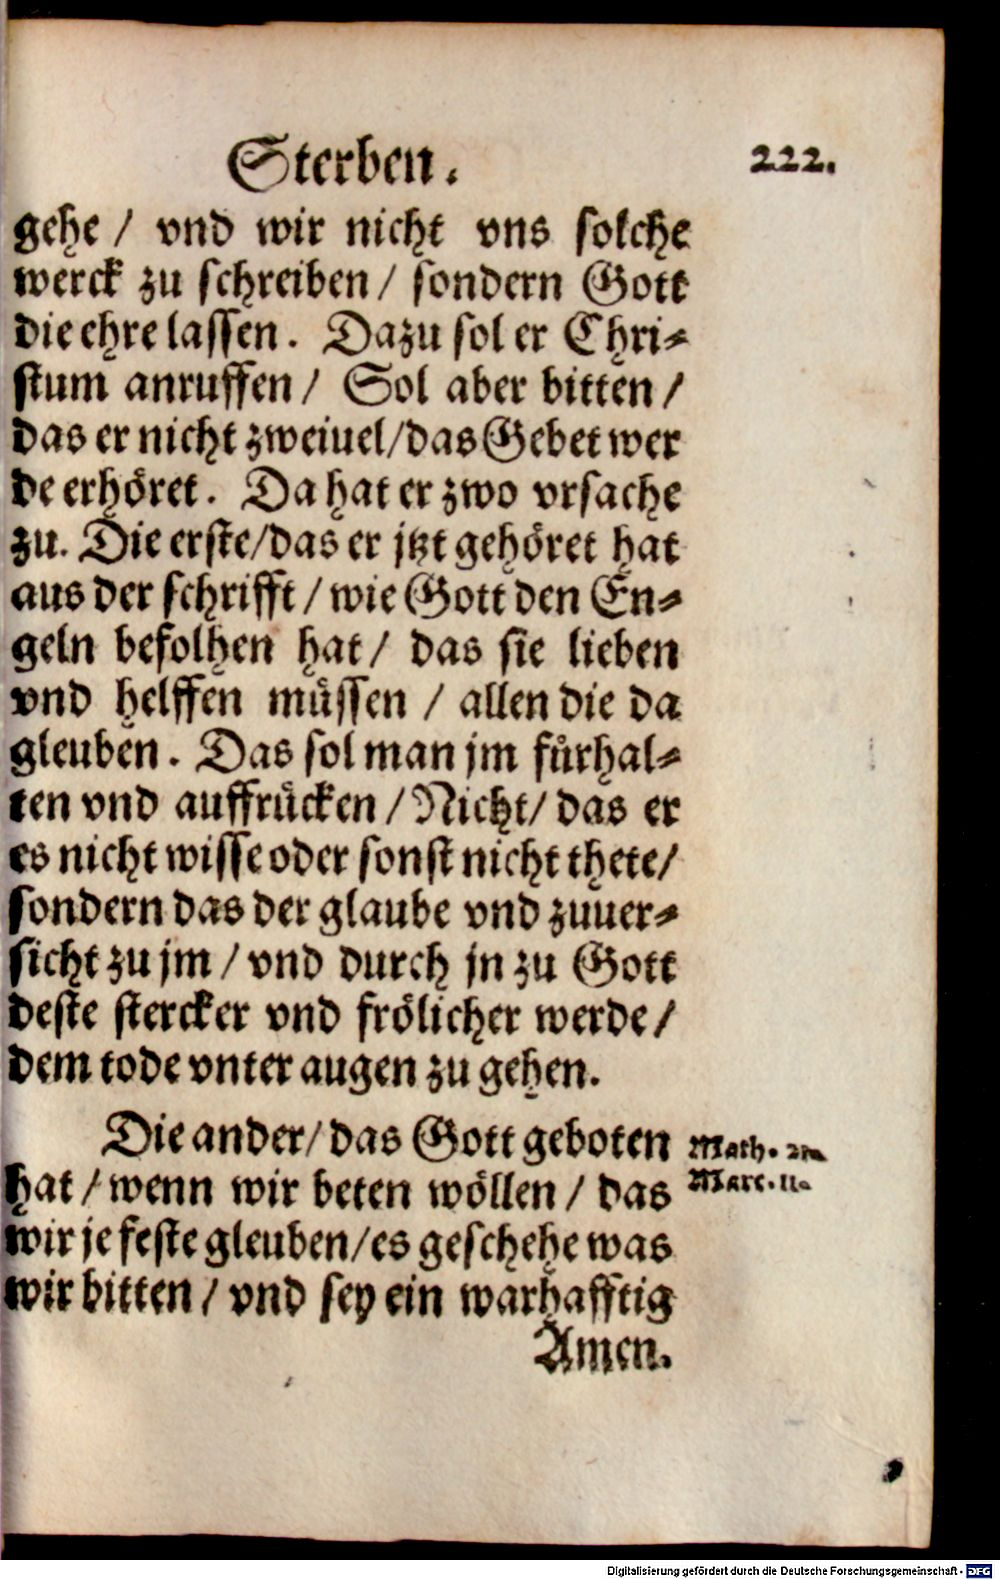 Sterben. 222.
gehe / vnd wir nicht vns solche
werck zu schreiben / sondern Gott
die ehre lassen. Dazu sol er Chri-
stum anruffen / Sol aber bitten /
das er nicht zweiuel/das Gebet wer
de erhöret. Da hat er zwo vrsache
zu. Die erste/das er jtzt gehöret hat
aus der schrifft / wie Gott den En-
geln befolhen hat / das sie lieben
vnd helffen müssen / allen die da
gleuben. Das sol man jm fürhal-
ten vnd auffrücken / Nicht/ das er
es nicht wisse oder sonst nicht thete/
sondern das der glaube vnd zuuer-
sicht zu jm / vnd durch jn zu Gott
deste stercker vnd frölicher werde/
dem tode vnter augen zu gehen.
Die ander/ das Gott geboten Math. 21.
hat / wenn wir beten wöllen / das Marc. 11.
wir je feste gleuben/es geschehe was
wir bitten / vnd sey ein warhafftig
Amen.
Digitalisierung gefördert durch die Deutsche Forschungsgemeinschaft - DFG